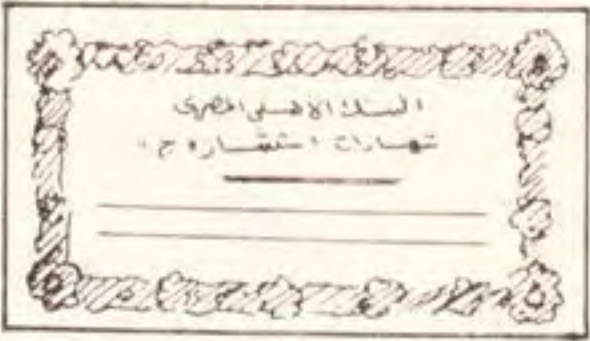 البنك الأهلى المصرى
شهادات استثمار « ج »